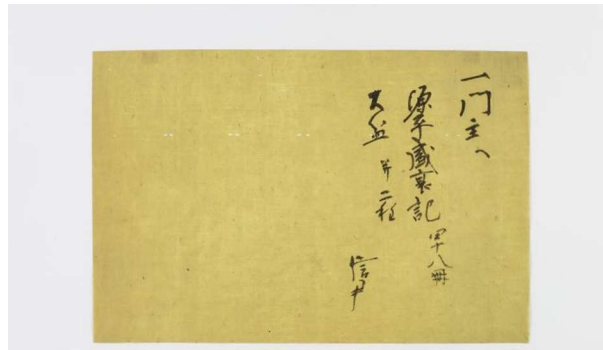 一門主へ
源平盛衰記 四十八冊
大盆 并 二種
信尹